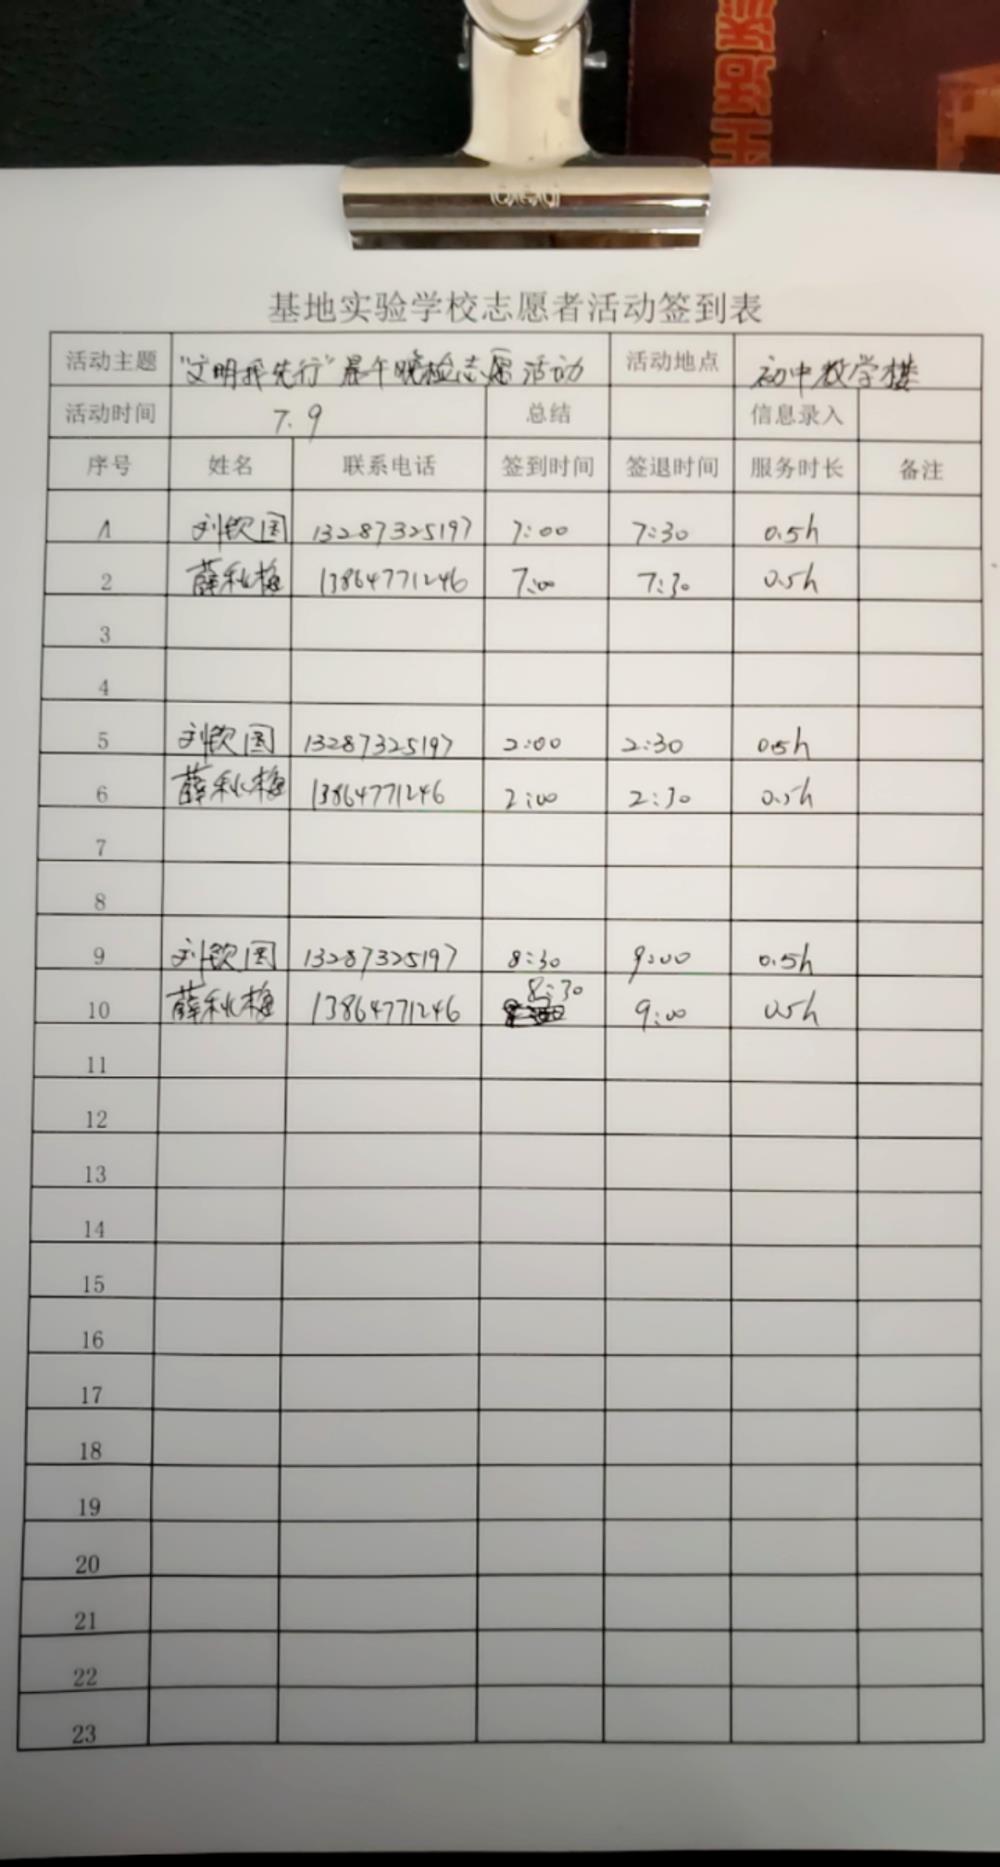 基地实验学校志愿者活动签到表
活动主题 "文明我先行"晨午晚检志愿活动 活动地点 初中教学楼
活动时间 7.9 总结 信息录入
序号 姓名 联系电话 签到时间 签退时间 服务时长 备注
1 刘钦国 13287325197 7:00 7:30 0.5h
2 薛秋梅 13864771246 7:00 7:30 0.5h
3
4
5 刘钦国 13287325197 2:00 2:30 0.5h
6 薛秋梅 13864771246 2:00 2:30 0.5h
7
8
9 刘钦国 13287325197 8:30 9:00 0.5h
10 薛秋梅 13864771246 8:30 9:00 0.5h
11
12
13
14
15
16
17
18
19
20
21
22
23